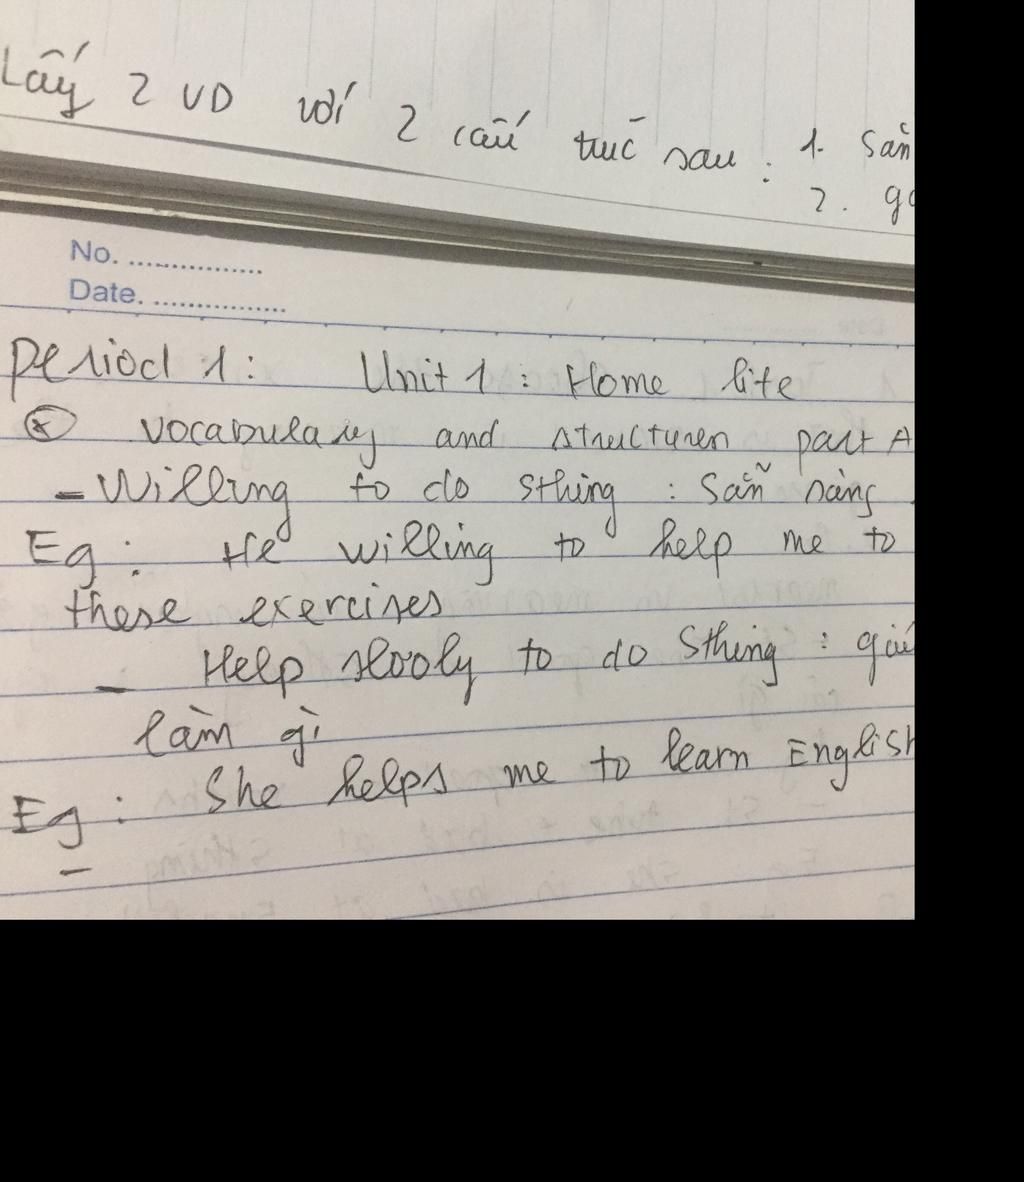 Lấy 2 VD với 2 cấu trúc sau : 1. Sẵn
2.
No. ...............
Date. ...............
Period 1 : Unit 1 : Home life
Vocabulary and structures part A
- Willing to do sthing : Sẵn sàng
Eg : He willing to help me to
these exercises
- Help slooly to do Sthing :
làm gì
Eg : She helps me to learn English
-